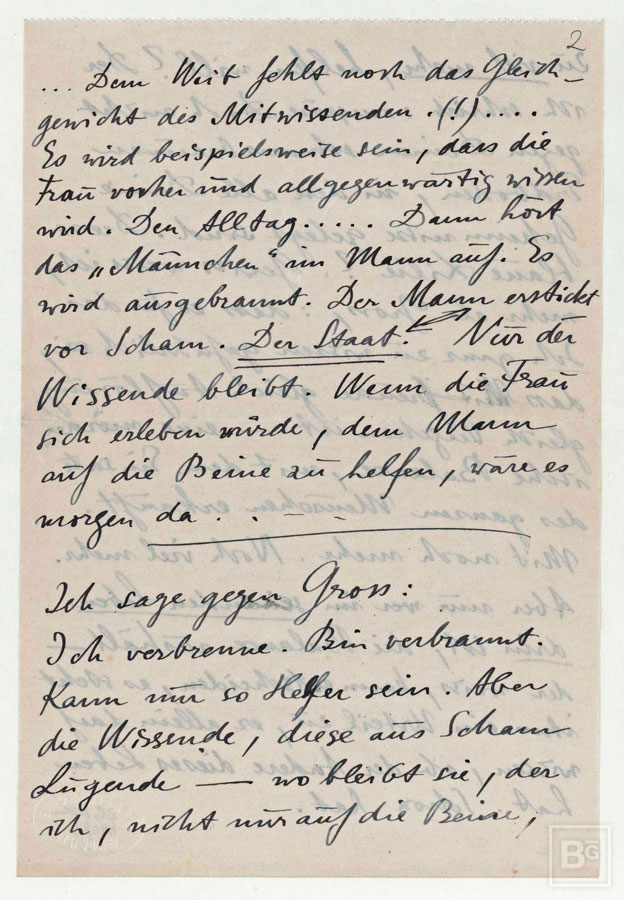 2
... Dem Weib fehlt noch das Gleich-
gewicht des Mitwissenden. (!) ....
Es wird beispielsweise sein, dass die
Frau vorher und allgegenwärtig wissen
wird. Den Alltag..... Dann hört
das „Männchen" im Mann auf. Es
wird ausgebrannt. Der Mann erstickt
vor Scham. Der Staat. Nur der
Wissende bleibt. Wenn die Frau
sich erleben würde, dem Mann
auf die Beine zu helfen, wäre es
morgen da . . – –
Ich sage gegen Gross:
Ich verbrenne. Bin verbrannt.
Kann nur so Helfer sein. Aber
die Wissende, diese aus Scham
Lügende — wo bleibt sie, der
ich, nicht nur auf die Beine,
BG